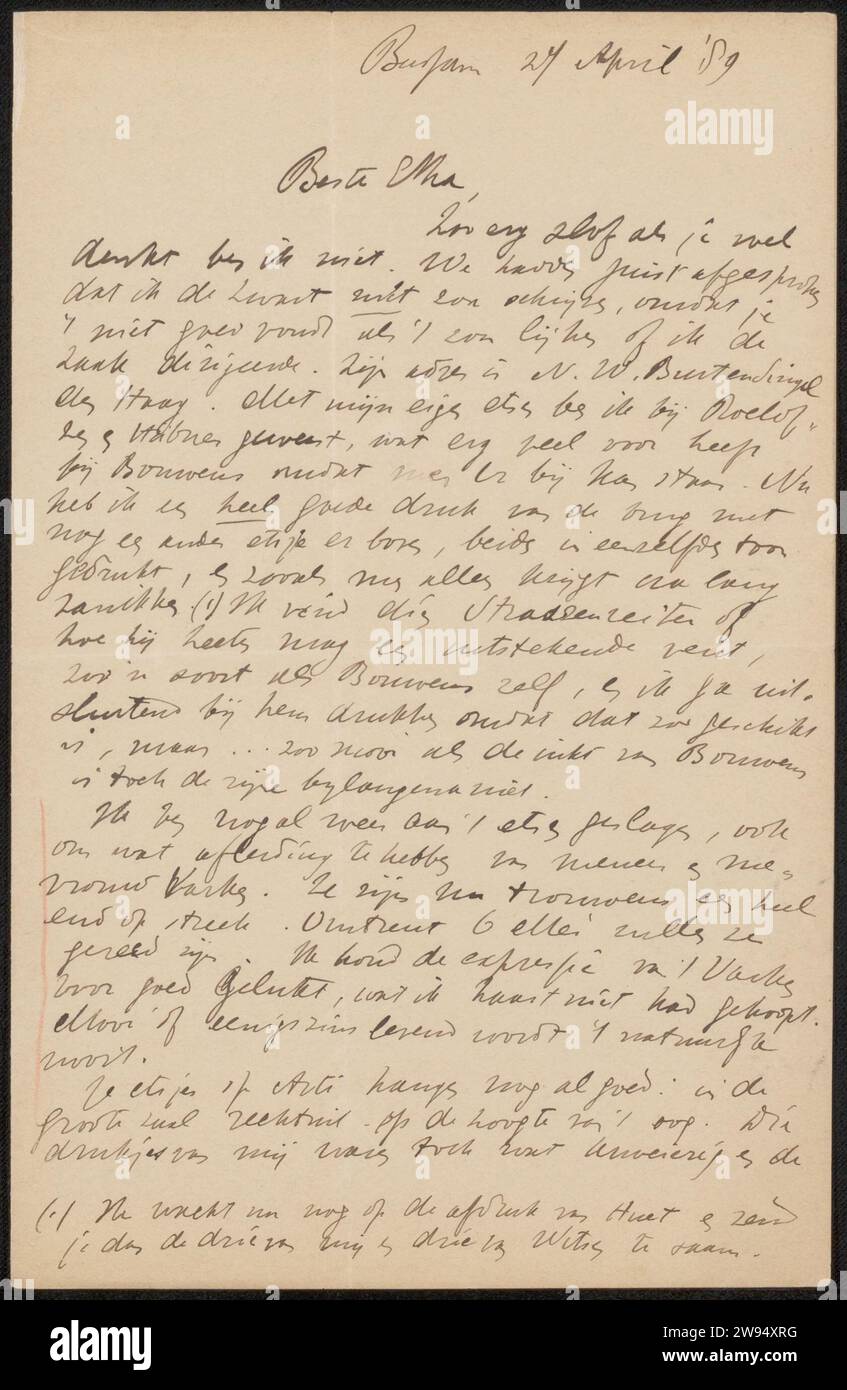 Bussum 24 April '89
Beste Etha,
Zoo erg slof als je wel
denkt ben ik niet. We hadden juist afgesproken
dat ik de Zwart niet zou schrijven, omdat je
't niet goed vondt als 't zou lijken of ik de
zaak dirigeerde. Zijn adres is N. W. Buitensingel
den Haag. Met mijn eigen etsen ben ik bij Roelof-
zen en Hübner geweest, wat erg veel voor heeft
bij Bouwens omdat men er bij kan staan. Nu
heb ik een heel goede druk van de brug met
nog een ander etsje er boven, beide in eenzelfde toon
gedrukt, en zooals men alles krijgt na lang
zanikken (1) Ik vind die Strassenreiter of
hoe hij heeten mag een uitstekende vent,
zoo'n soort als Bouwens zelf, en ik ga uit-
sluitend bij hem drukken omdat dat zoo geschikt
is, maar ... zoo mooi als de inkt van Bouwens
is toch de zijne bylangena niet.
Ik ben nogal weer aan 't etsen geslagen, ook
om wat afleiding te hebben van meneer en me-
vrouw Varken. Ze zijn nu trouwens een heel
end op streek. Omtrent 6 zullen ze
gereed zijn. Ik houd de expressie van 't Varken
voor goed gelukt, wat ik haast niet had gehoopt.
Mooi of eenigszins levend wordt 't natuurlijk
nooit.
Je etsjes op Arti hangen nog al goed: in de
groote zaal rechtuit op de hoogte van 't oog. Die
drukjes van mij waren toch wat en de
(1) Ik wacht nu nog op de afdruk van Huet en zend
je dan de drie van mij en drie van Witsen te saam.
alamy
Image ID: 2W94XRG
www.alamy.com